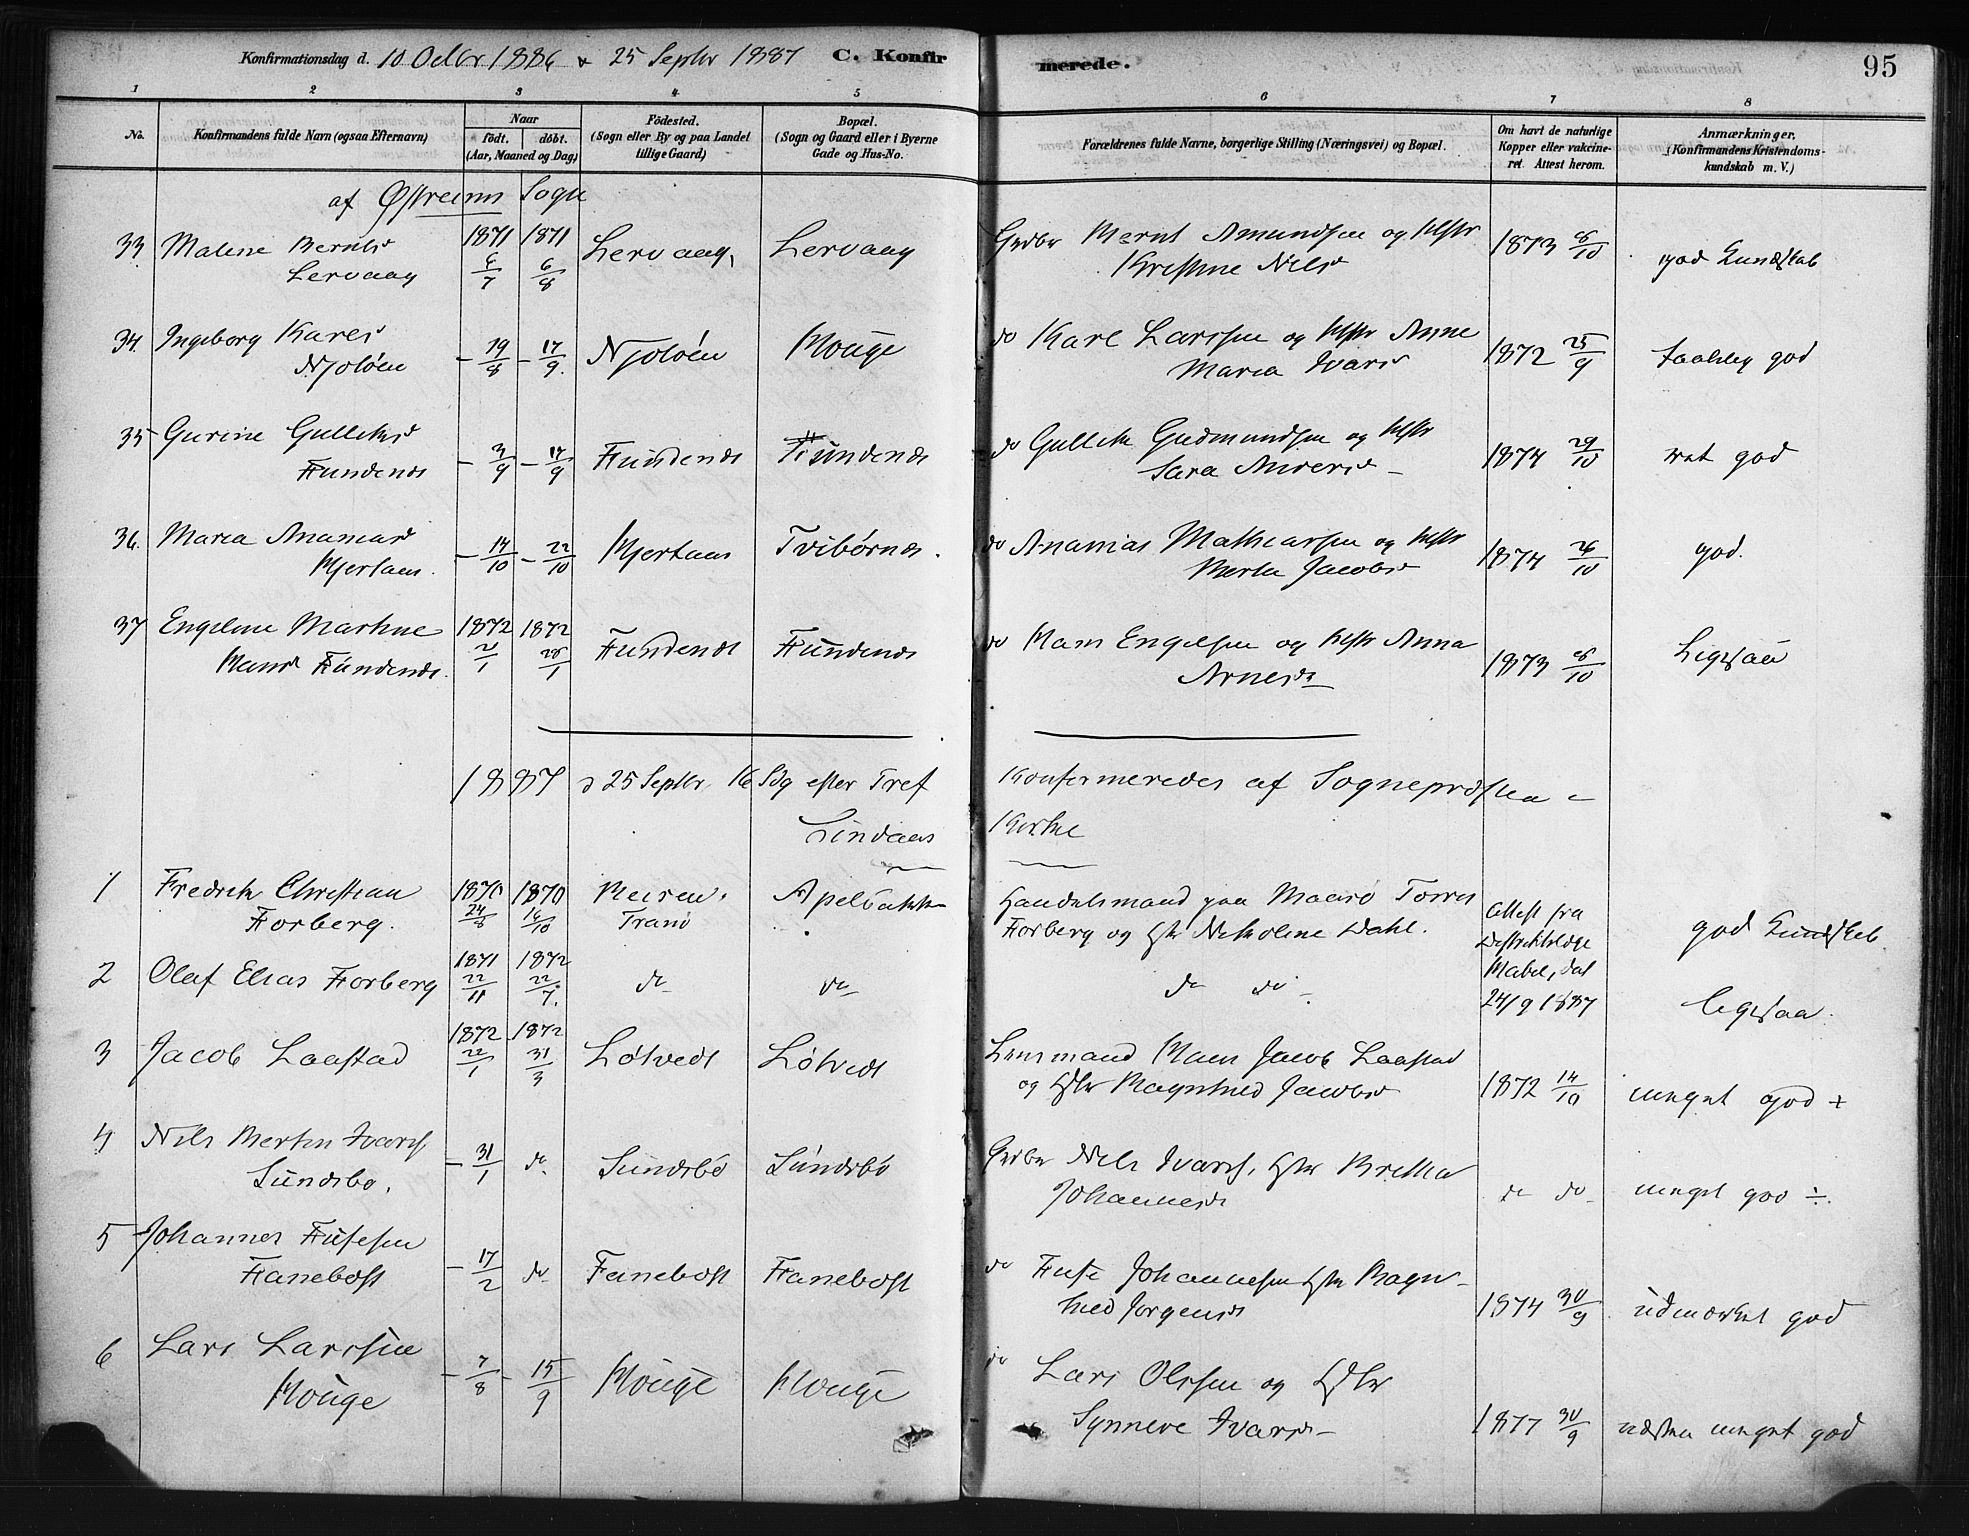 Konfirmationsdag d. 10 Octbr 1886 & 25 Septbr 1887 C. Konfirmerede. 95
1 2 3 4 5 6 7 8
No. Konfirmandens fulde Navn (ogsaa Efternavn) Naar födt. döbt. (Aar, Maaned og Dag) Födested. (Sogn eller By og paa Landet tillige Gaard) Bopæl. (Sogn og Gaard eller i Byerne Gade og Hus-No. Forældrenes fulde Navne, borgerlige Stilling (Næringsvei) og Bopæl. Om havt de naturlige Kopper eller vakcineret. Attest herom. Anmærkninger, (Konfirmandens Kristendomskundskab m. V.)
af Østreims Sogn
33 Malene Berntsd 1871 1871 Lervaag, Lervaag Grdbr Bernt Amundsen og Hstr 1873 8/10 god Kundskab
Lervaag 6/7 6/8 Kristine Nilsd
34. Ingeborg Karesd – 19/8 – 17/9. Njoløen Houge do Karl Larssen og Hstr Anne 1872 25/9 taalelig god
Njoløen Maria Ivarsd
35 Gurine Gulliksd – 3/9 – 17/9 Fundenes Fundenes do Gullik Gudmundsen og Hstr 1874 29/10 ret god
Fundenes Sara Andersd –
36. Maria Ananiasd – 14/10 – 22/10 Hjertaas Tvibørnes. do Ananias Mathiassen og Hstr 1874 26/10 god.
Hjertaas. Merte Jacobsd
37 Engeline Martine 1872 1872 Fundenes Fundenes do Hans Engelsen og Hstr Anna 1873 8/10 Ligesaa
Hansd Fundenes. 2/1 28/1 Arnesdr
1887 d 25 Septbr, 16 Sdg efter Tref Konfirmeredes af Sognepræsten i
Lindaas Kirke
1 Fredrik Christian 1870 1870 Apelbakke Handelsmand paa Maarø Torres Attest fra god Kundskab.
Forberg. 24/8 16/10 Tranø Forberg og Hstr Nikoline Dahl. Distriktslæge
2 Olaf Elias Forberg 1871 22/11 1872 22/7. do do do do Mabel, dat 24/9 1887 ligesaa.
3 Jacob Laastad 1872 22/1 1872 31/3 Løtvedt Løtvedt Lensmand Hans Jacob Laastad 1872 14/10 meget god +
og Hstr Magnhild Jacobsd
4 Nils Mertin Ivars – 31/1 do Sundsbø Sundsbø Grdbr Nils Ivars, Hstr Britha do do meget god ÷.
Sundsbø. Johannesd
5 Johannes Fusesen – 17/2 do Fanebøst Fanebøst do Fuse Johannesen Hstr Magn- 1874 30/9 udmærket god
Fanebøst hild Jørgensd
6 Lars Larssen – 7/8 – 15/9 Houge Houge do Lars Olssen og Hstr
Houge Synneve Ivarsd – 1877 30/9 næsten meget god